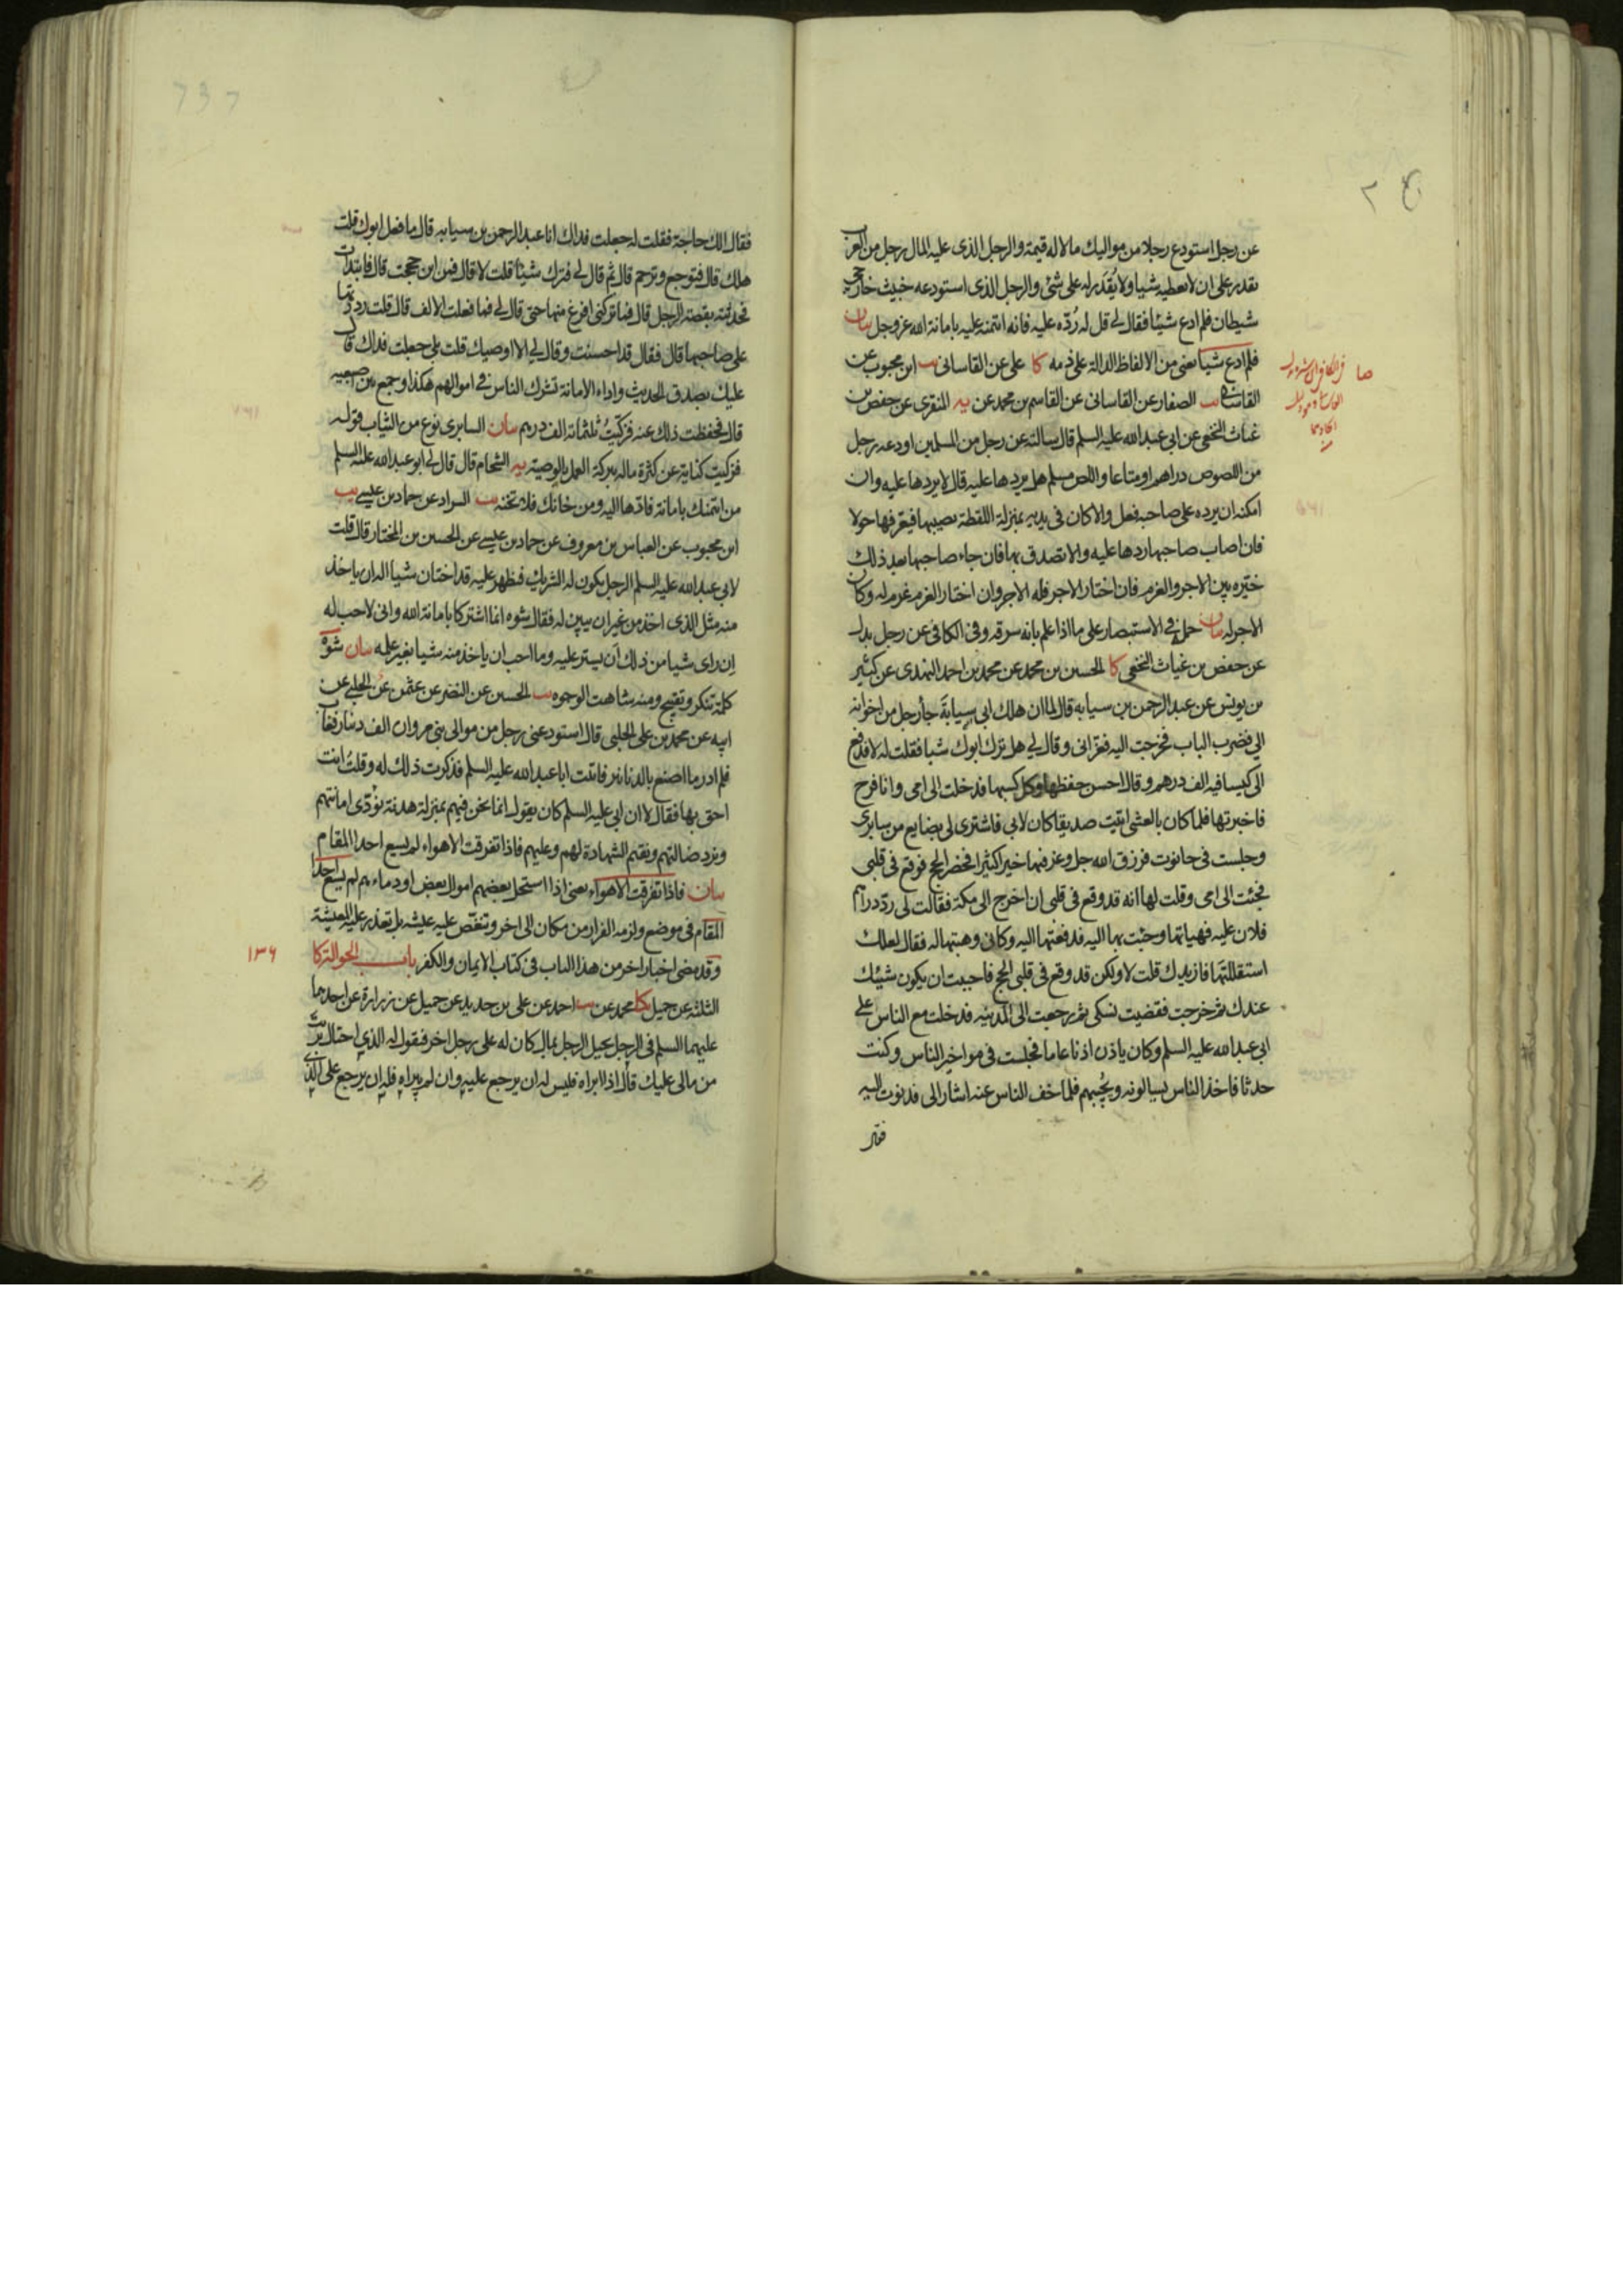 عن رجل استودع رجلا من مواليك مالا له قيمة والرجل الذى عليه المال رجل من العرب
يقدر على ان لا يعطيه شيا ولا يُقدَر له على شئ والرجل الذى استودعه خبيث خارجى
شيطان فلم ادع شيئا فقال لى قل له رُدّه عليه فانه ائتمنه عليه بامانة الله عز وجل بيان
فلم ادع شيئا يعنى من الالفاظ الدالة على ذمه كا على عن القاسانى يب ابن محبوب عن
القاسانى يب الصفار عن القاسانى عن القاسم بن محمد عن يه المنقرى عن حفص بن
غياث النخعى عن ابى عبد الله عليه السلم قال سالته عن رجل من المسلمين اودعه رجل
من اللصوص دراهم او متاعا واللص مسلم هل يرد ها عليه قال لا يردها عليه وان
امكنه ان يرده على صاحبه فعل والا كان فى يديه بمنزلة اللقطة يصيبها فيعرفها حولا
فان اصاب صاحبها ردها عليه والا تصدق بها فان جاء صاحبها بعد ذلك
خيّره بين الاجر والغرم فان اختار الاجر فله الاجر وان اختار الغرم غرم له وكان
الاجر له بيان حمل فى الاستبصار على ما اذا علم بانه سرقه وفى الكافى عن رجل بدل
عن حفص بن غياث النخعى كا الحسين بن محمد عن محمد بن احمد النهدى عن كثير
بن يونس عن عبد الرحمن بن سيابه قال لما ان هلك ابى سيابةَ جاء رجل من اخوانه
الى فضرب الباب فخرجت اليه فعزانى وقال لى هل ترك ابوك شيا فقلت له لا فدفع
الى كيسا فيه الف درهم وقال احسن حفظها وكل كسبها فدخلت الى امى وانا فرح
فاخبرتها فلما كان بالعشى اتيت صديقا كان لابى فاشترى لى بضايع من سابرى
وجلست فى حانوت فرزق الله جل وعز فيها خيرا كثيرا فحضر الحج فوقع فى قلبى
فجئت الى امى وقلت لها انه قد وقع فى قلبى ان اخرج الى مكة فقالت لى ردّ دراهم
فلان عليه فهياتها وجئت بها اليه فدفعتها اليه وكانى وهبتها له فقال لعلك
استقللتها فازيدك قلت لا ولكن قد وقع فى قلبى الحج فاحببت ان يكون شيئك
عندك ثم خرجت فقضيت نسكى ثم رجعت الى المدينه فدخلت مع الناس على
ابى عبد الله عليه السلم وكان ياذن اذنا عاما فجلست فى مواخير الناس وكنت
حدثا فاخذ الناس يسالونه ويُجيبهم فلما خف الناس عنه اشار الى فدنوت اليه
فقال الك حاجة فقلت له جعلت فداك انا عبد الرحمن بن سيابه قال ما فعل ابوك قلت
هلك قال فتوجع وترحم قال ثم قال لى فترك شيئا قلت لا قال فمن اين حججت قال فابتدات
فحدثته بقصة الرجل قال فما تركنى افرغ منها حتى قال لى فما فعلت الالف قال قلت رددتها
على صاحبها قال فقال قد احسنت وقال لى الا اوصيك قلت بلى جعلت فداك قال
عليك بصدق الحديث واداء الامانة تشرك الناس فى اموالهم هكذا وجمع بين اصبعيه
قال فحفظت ذلك عنه فزكيتُ ثلثمائة الف درهم بيان السابرى نوع من الثياب قوله
فزكيت كناية عن كثرة ماله ببركة العمل بالوصية يه الشحام قال قال لى ابو عبد الله عليه السلم
من ائتمنك بامانة فادّها اليه ومن خانك فلا تخنه يب السراد عن حماد بن عيسى يب
ابن محبوب عن العباس بن معروف عن حماد بن عيسى عن الحسين بن المختار قال قلت
لابى عبد الله عليه السلم الرجل يكون له الشريك فيظهر عليه قد اختان شيا اله ان ياخذ
منه مثل الذى اخذ من غير ان يبين له فقال شوه انما اشتركا بامانة الله وانى لاحب له
ان راى شيا من ذلك ان يستر عليه وما احب ان ياخذ منه شيا بغير علمه بيان شوه
كلمة تنكر وتقبيح ومنه شاهت الوجوه يب الحسين عن النضر عن عثمن عن الحلبى عن
ابيه عن محمد بن على الحلبى قال استودعنى رجل من موالى بنى مروان الف دينار فغاب
فلم ادر ما اصنع بالدنانير فاتيت ابا عبد الله عليه السلم فذكرت ذلك له وقلت انت
احق بها فقال لا ان ابى عليه السلم كان يقول انما نحن فيهم بمنزلة هدنة نؤدّى امانتهم
ونرد ضالتهم ونقيم الشهادة لهم وعليهم فاذا تفرقت الاهواء لم يسع احدا المقام
بيان فاذا تفرقت الاهواء يعنى اذا استحل بعضهم اموال بعض او دماءهم لم يسع احدا
المقام فى موضع ولزمه الفرار من مكان الى اخر وتنغص عليه عيشه بل تعذر عليه المعيشة
وقد مضى اخبار اخر من هذا الباب فى كتاب الايمان والكفر باب الحوالة كا
١٣٦
الثلثة عن جميل كا محمد عن يب احمد عن على بن حديد عن جميل عن زرارة عن احدهما
عليهما السلم فى الرجل يحيل الرجل بمال كان له على رجل اخر فيقول له الذى احتال برئت
من مالى عليك قال اذا ابراه فليس له ان يرجع عليه وان لم يبراه فله ان يرجع على الذى